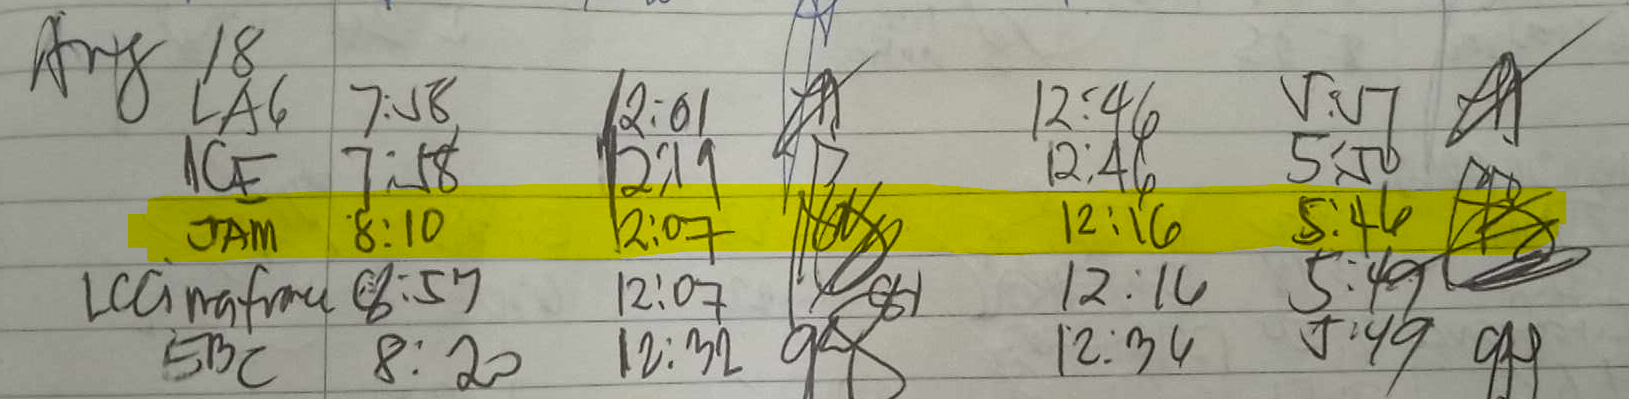 Aug 18
LAG 7:58 12:01 12:46 5:57
ICE 7:58 12:19 12:46 5:50
JAM 8:10 12:07 12:16 5:46
8:57 12:07 12:16 5:49
SBC 8:20 12:32 12:34 5:49